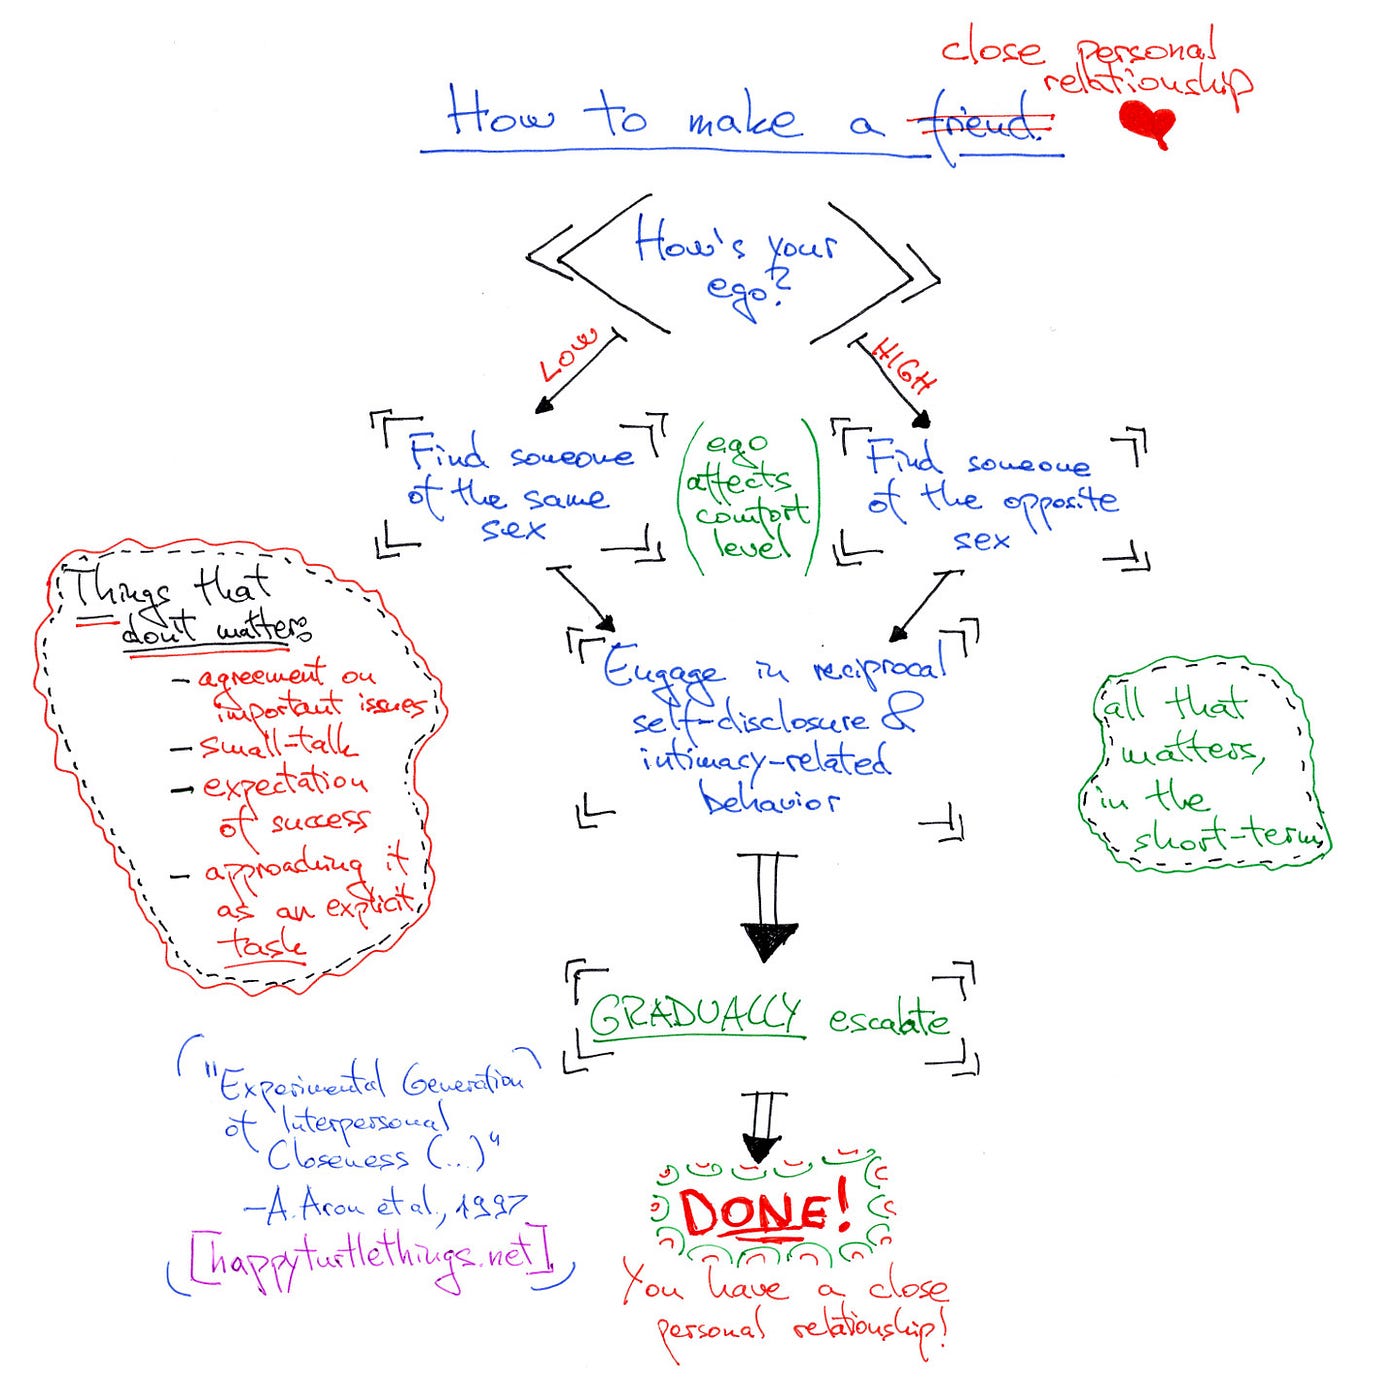 close personal
relationship
How to make a friend.
How's your
ego?
LOW
HIGH
Find someone
of the same
sex
ego
affects
comfort
level
Find someone
of the opposite
sex
Things that
don't matter:
- agreement on
important issues
- small-talk
- expectation
of success
- approaching it
as an explicit
task
Engage in reciprocal
self-disclosure &
intimacy-related
behavior
all that
matters,
in the
short-term
GRADUALLY escalate
("Experimental Generation
of Interpersonal
Closeness (...)"
-A. Aron et al., 1997
[happyturtlethings.net])
DONE!
You have a close
personal relationship!